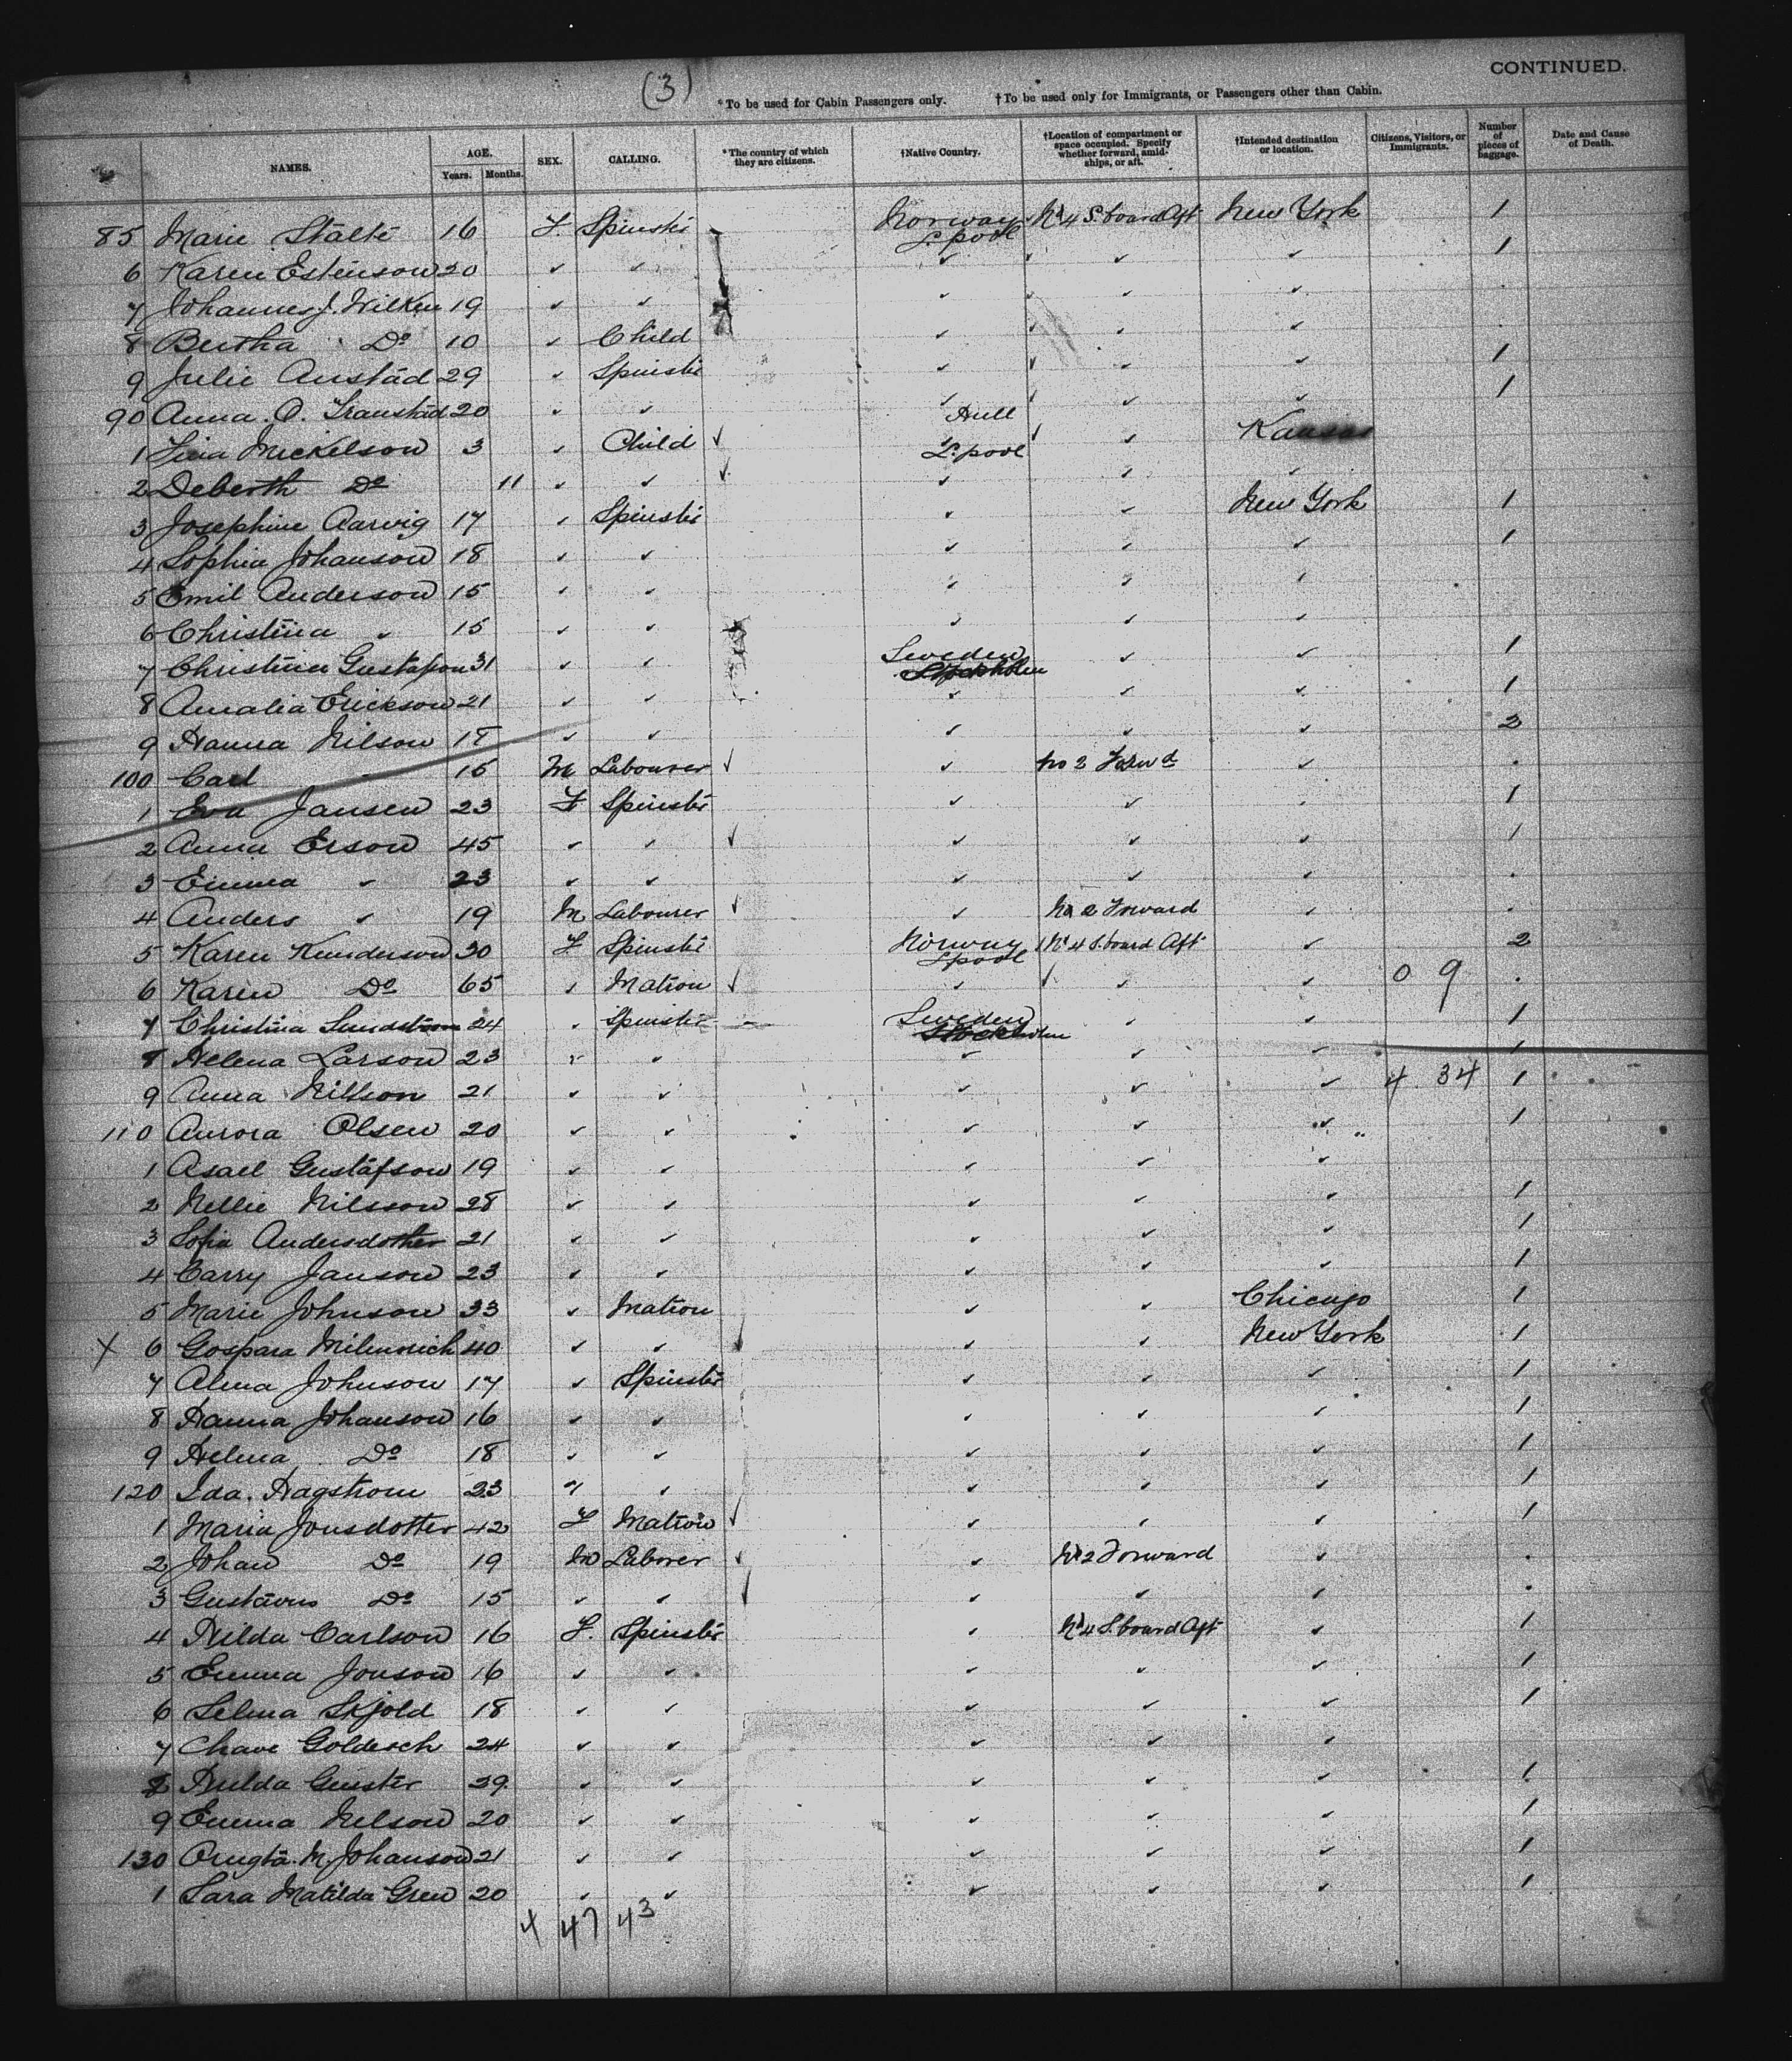 CONTINUED.
(3)
*To be used for Cabin Passengers only. †To be used only for Immigrants, or Passengers other than Cabin.
NAMES. AGE. Years. Months. SEX. CALLING. *The country of which they are citizens. †Native Country. †Location of compartment or space occupied. Specify whether forward, amidships, or aft. †Intended destination or location. Citizens, Visitors, or Immigrants. Number of pieces of baggage. Date and Cause of Death.
85 Marie Stalte 16 F. Spinster Norway L.pool No 4 S.board Aft New York 1
6 Karen Estenson 20 ✓ ✓ ✓ ✓ ✓ 1
7 Johannes J. Wilken 19 ✓ ✓ ✓ ✓ ✓
8 Bertha Do 10 ✓ Child ✓ ✓ ✓
9 Julie Austad 29 ✓ Spinster ✓ ✓ ✓ 1
90 Anna. O. Transtad 20 ✓ ✓ ✓ Hull ✓ ✓ 1
1 Lina Mickelson 3 ✓ Child ✓ L.pool ✓ ✓ Kansas
2 Deberth Do 11 ✓ ✓ ✓ ✓ ✓ ✓
3 Josephine Aarvig 17 ✓ Spinster ✓ ✓ New York 1
4 Sophia Johanson 18 ✓ ✓ ✓ ✓ ✓ 1
5 Emil Anderson 15 ✓ ✓ ✓ ✓ ✓
6 Christina ✓ 15 ✓ ✓ ✓ ✓ ✓
7 Christina Gustafson 31 ✓ ✓ Sweden Stockholm ✓ ✓ 1
8 Amalia Erickson 21 ✓ ✓ ✓ ✓ ✓ 1
9 Hanna Nilson 18 ✓ ✓ ✓ ✓ ✓ 2
100 Carl 16 M Labourer ✓ ✓ No 2 Forwd ✓
1 Eva Jansen 23 F Spinster ✓ ✓ 1
2 Anna Erson 45 ✓ ✓ ✓ ✓ ✓ ✓ 1
3 Emma ✓ 23 ✓ ✓ ✓ ✓ ✓
4 Anders ✓ 19 M Labourer ✓ ✓ No 2 Forward ✓
5 Karen Kunderson 30 F Spinster Norway L.pool No 4 S.board Aft ✓ 2
6 Karen Do 65 ✓ Matron ✓ ✓ ✓ ✓ ✓ 0 9
7 Christina Lundstrom 24 ✓ Spinster Sweden Stockholm ✓ ✓ 1
8 Helena Larson 23 ✓ ✓ ✓ ✓ ✓ 1
9 Anna Nillson 21 ✓ ✓ ✓ ✓ ✓ 4 34 1
110 Aurora Olsen 20 ✓ ✓ ✓ ✓ ✓ 1
1 Asael Gustafson 19 ✓ ✓ ✓ ✓ ✓
2 Nellie Nilsson 28 ✓ ✓ ✓ ✓ ✓ 1
3 Sofia Andersdotter 21 ✓ ✓ ✓ ✓ ✓ 1
4 Carry Janson 23 ✓ ✓ ✓ ✓ ✓ 1
5 Marie Johnson 33 ✓ Matron ✓ ✓ Chicago 1
X 6 Gospara 40 ✓ ✓ ✓ ✓ ✓ New York 1
7 Alma Johnson 17 ✓ Spinster ✓ ✓ ✓ 1
8 Hanna Johanson 16 ✓ ✓ ✓ ✓ ✓ 1
9 Helma Do 18 ✓ ✓ ✓ ✓ ✓ 1
120 Ida. Hagstrom 23 ✓ ✓ ✓ ✓ ✓ 1
1 Maria Jonsdotter 42 F Matron ✓ ✓ ✓ ✓ 1
2 Johan Do 19 M Laborer ✓ ✓ No 2 Forward ✓
3 Gustavus Do 15 ✓ ✓ ✓ ✓ ✓ ✓
4 Hilda Carlson 16 F. Spinster ✓ No 4 S.board Aft ✓ 1
5 Emma Jonson 16 ✓ ✓ ✓ ✓ ✓ 1
6 Selma Skjold 18 ✓ ✓ ✓ ✓ ✓ 1
7 Chave Goldesch 24 ✓ ✓ ✓ ✓ ✓
8 Hulda 29 ✓ ✓ ✓ ✓ ✓ 1
9 Emma Nelson 20 ✓ ✓ ✓ ✓ ✓ 1
130 M. Johanson 21 ✓ ✓ ✓ ✓ ✓ 1
1 Sara Matilda Gren 20 ✓ ✓ ✓ ✓ ✓ 1
4 47 43